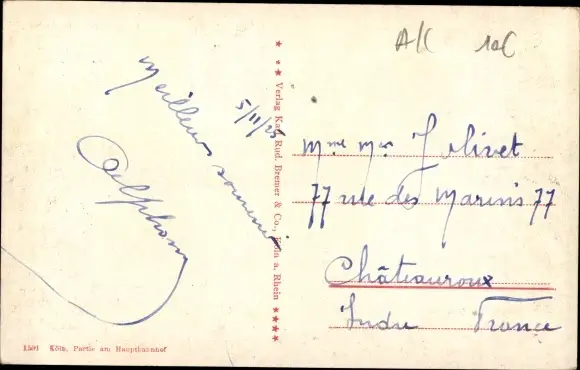 A/C 10C
Meilleurs souvenirs
Alphons
5/11/25
★ ★★ Verlag Karl Rud. Bremer & Co., Köln a. Rhein ★★★★
Mme Mer Jolivet
77 rue des Marins 77
Châteauroux
Indre France
1591 Köln, Partie am Hauptbahnhof